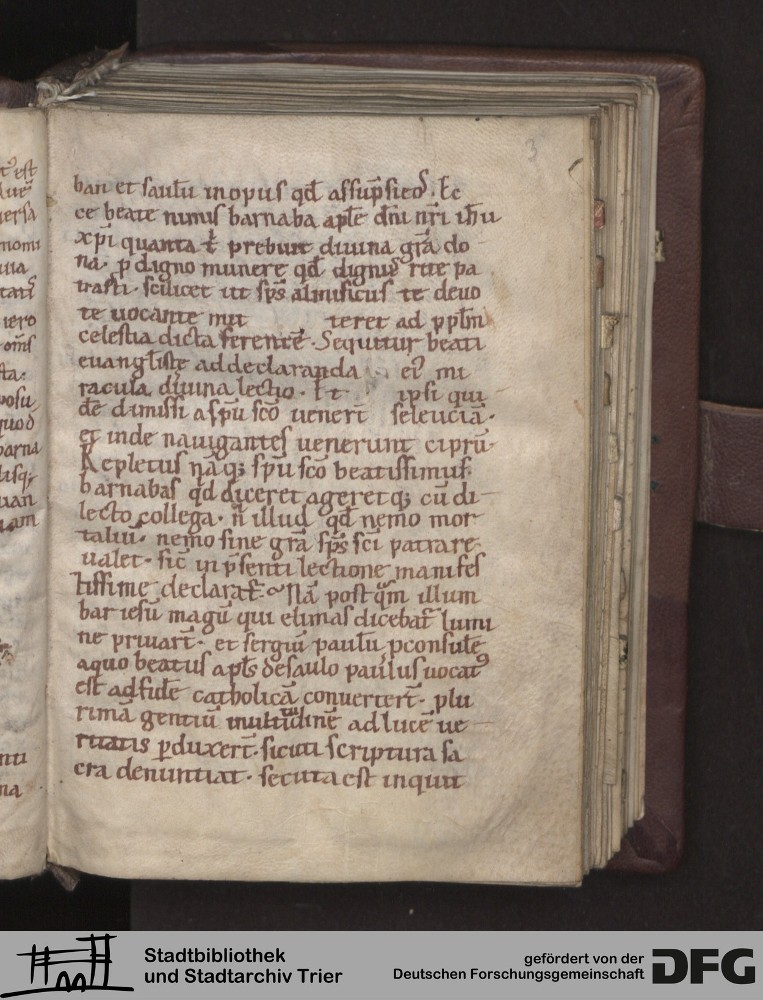 3
ban et saulū in opus qđ assūpsi eoſ. Ec
ce beate nimis barnaba aple dn̄i nr̄i ihū
xpi quanta t̄ prebuit diuina gr̄a do
na. p digno munere qđ digniꝰ rite pa
trasti. scilicet ut sp̄s almificus te deuo
te uocante mit teret ad pplm̄
celestia dicta ferentē. Sequitur beati
euangliste ad declaranda eiꝰ mi
racula diuina lectio. Et ipsi qui
dē dimissi a sp̄u sc̄o uenert̄ seleuciā.
et inde nauigantes uenerunt ciprū.
Repletus nāq; sp̄u sc̄o beatissimus
barnabas qđ diceret ageretq; cū di
lecto collega. n̄ illud qđ nemo mor
taliū. nemo sine gr̄a sp̄s sc̄i patrare
ualet. sic̄ in p̄senti lectione manifes
tissime declarat̄. Nā postqm̄ illum
bar iesū magū qui elimas dicebat̄ lumi
ne priuart̄. et sergiū paulū pconsulē
a quo beatus apls de saulo paulus uocatꝰ
est ad fidē catholicā conuertert̄. plu
rimā gentiū multitudinē ad lucē ue
ritatis ꝑduxert̄. sicuti scriptura sa
cra denuntiat. secuta est inquit
Stadtbibliothek
und Stadtarchiv Trier
gefördert von der
Deutschen Forschungsgemeinschaft
DFG